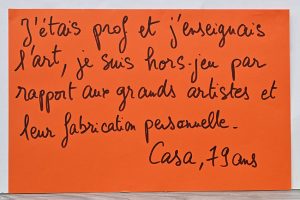 J'étais prof et j'enseignais
l'art, je suis hors-jeu par
rapport aux grands artistes et
leur fabrication personnelle.
Casa, 79 ans